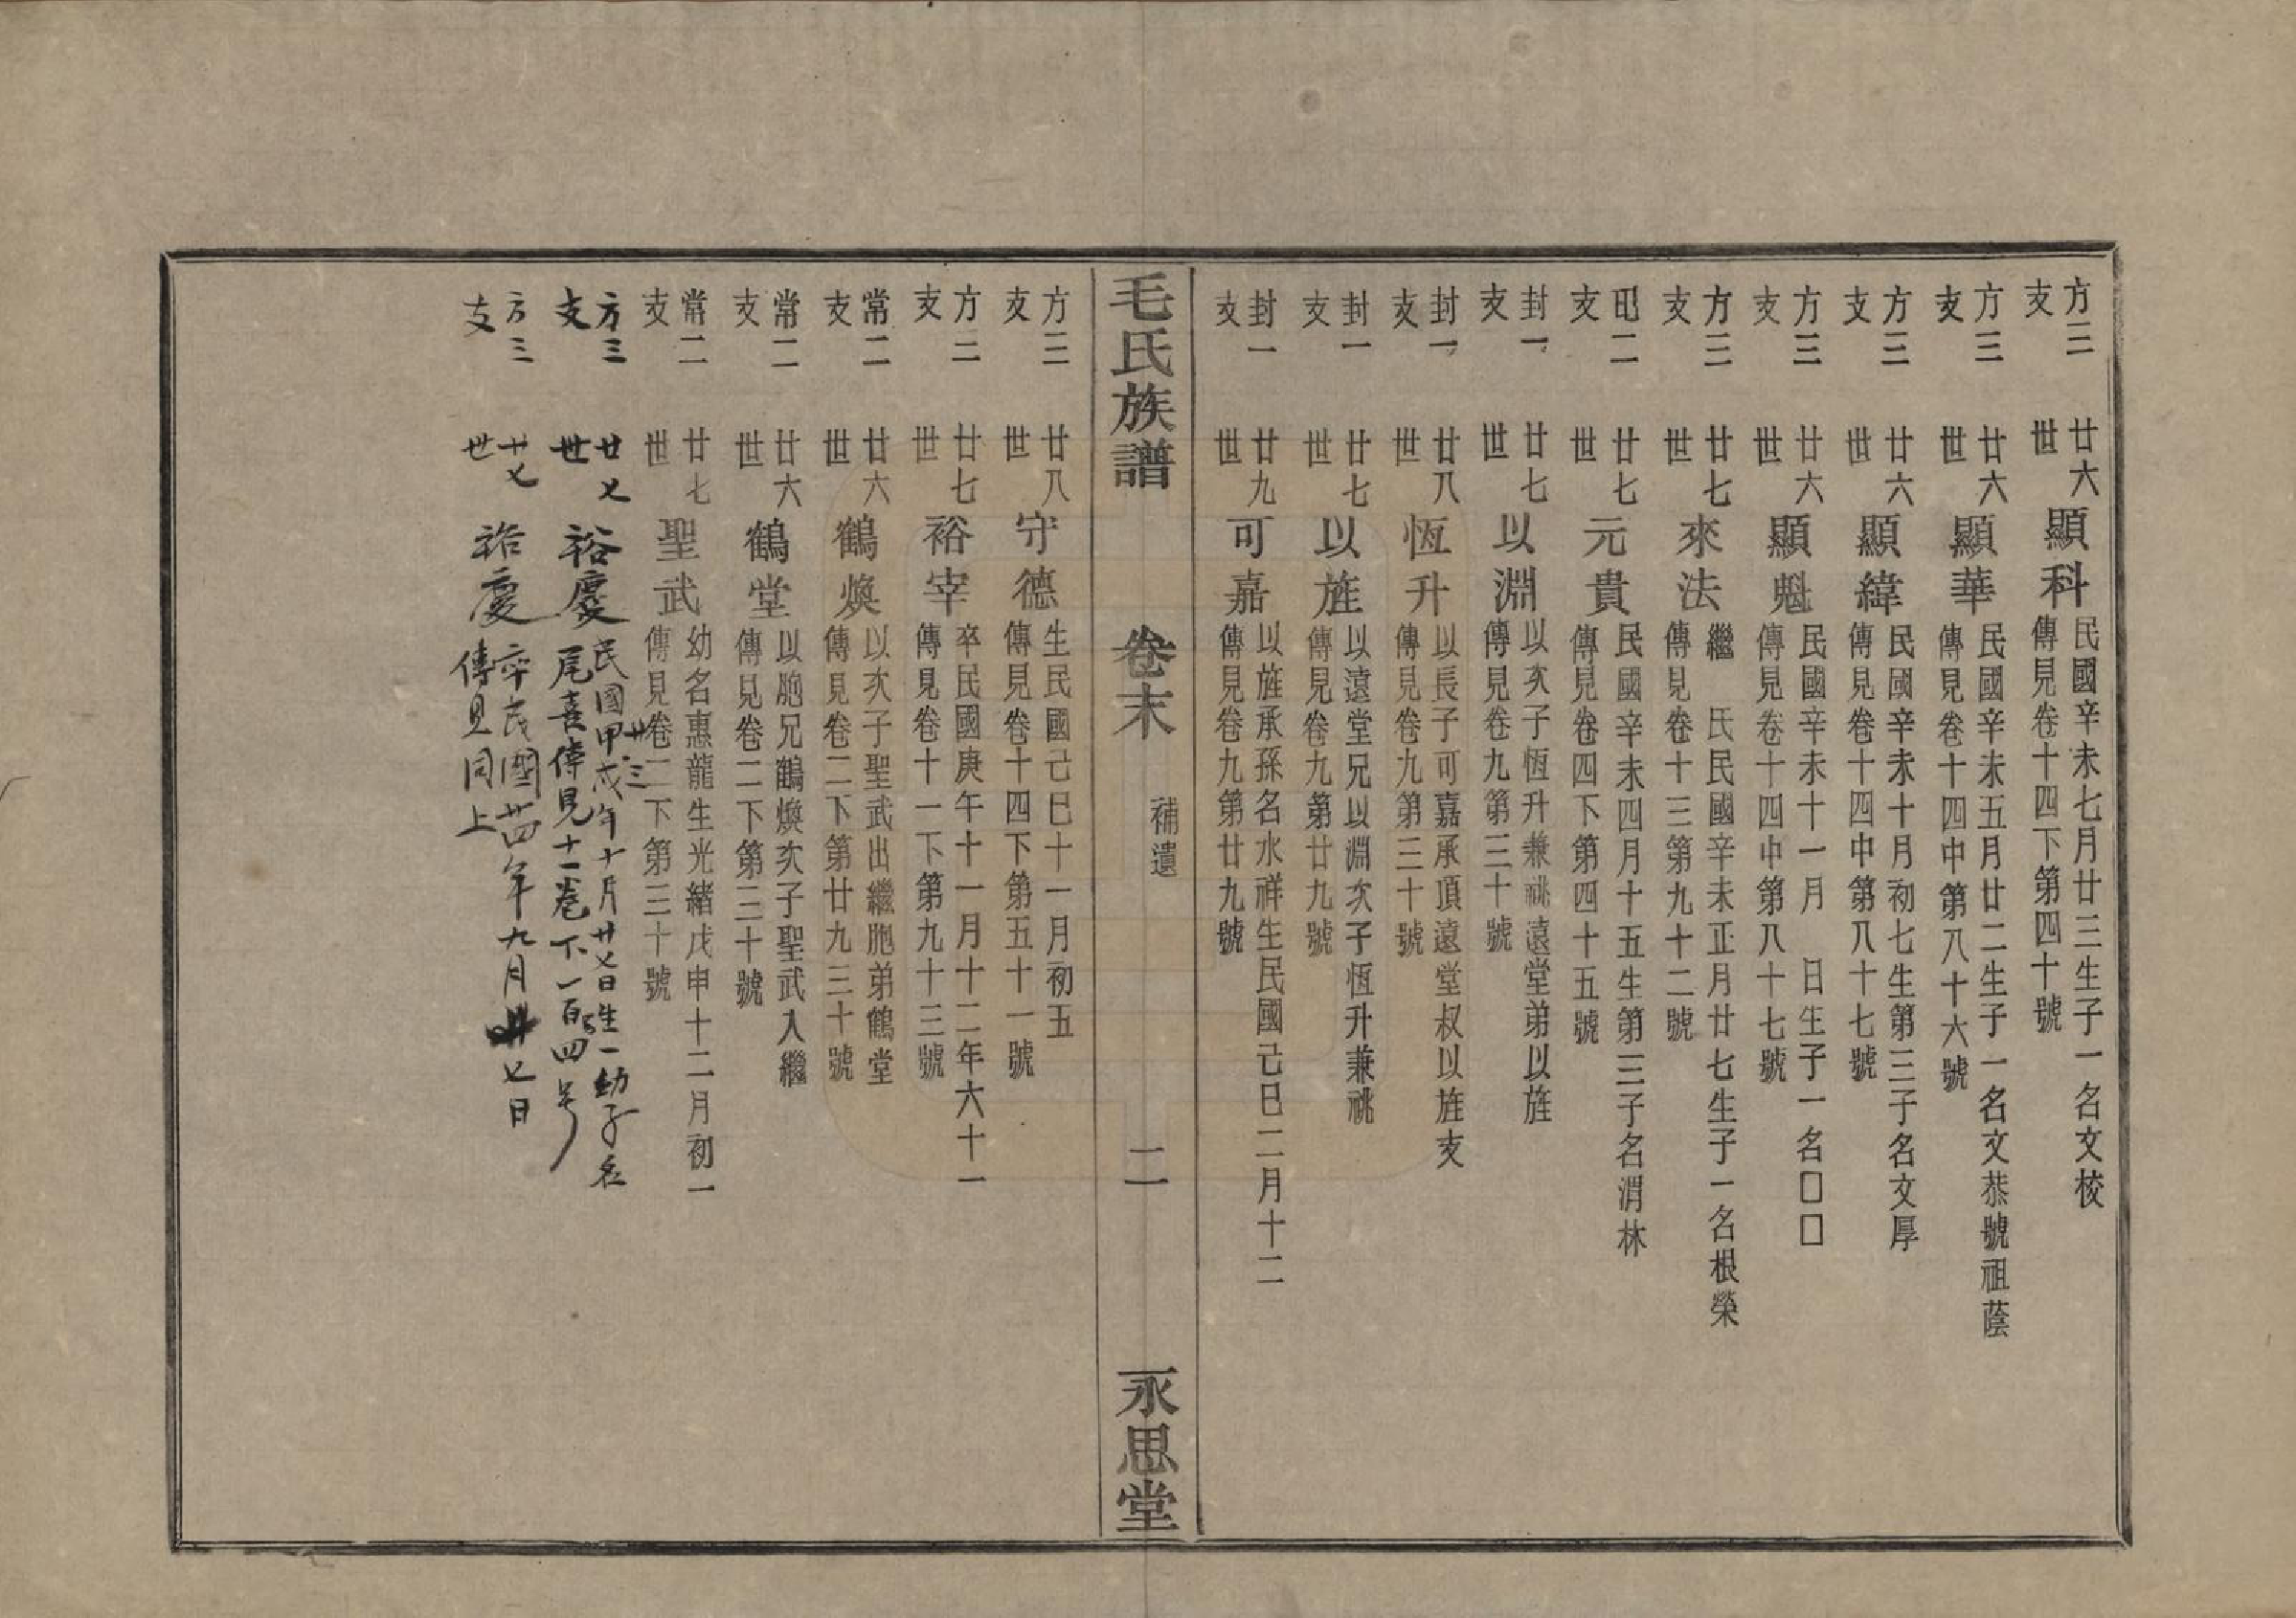 方三支 廿六世 顯科 民國辛未七月廿三生子一名文校
傳見卷十四下第四十號
方三支 廿六世 顯華 民國辛未五月廿二生子一名文恭號祖蔭
傳見卷十四中第八十六號
方三支 廿六世 顯緯 民國辛未十月初七生第三子名文厚
傳見卷十四中第八十七號
方三支 廿六世 顯魁 民國辛未十一月 日生子一名□□
傳見卷十四中第八十七號
方三支 廿七世 來法 繼 氏民國辛未正月廿七生子一名根榮
傳見卷十三第九十二號
昭二支 廿七世 元貴 民國辛未四月十五生第三子名渭林
傳見卷四下第四十五號
封一支 廿七世 以淵 以次子恆升兼祧遠堂弟以旌
傳見卷九第三十號
封一支 廿八世 恆升 以長子可嘉承頂遠堂叔以旌支
傳見卷九第三十號
封一支 廿七世 以旌 以遠堂兄以淵次子恆升兼祧
傳見卷九第廿九號
封一支 廿九世 可嘉 以旌承孫名水祥生民國己巳二月十二
傳見卷九第廿九號
毛氏族譜 卷末 補遺 二 永思堂
方三支 廿八世 守德 生民國己巳十一月初五
傳見卷十四下第五十一號
方二支 廿七世 裕宰 卒民國庚午十一月十二年六十一
傳見卷十一下第九十三號
常二支 廿六世 鶴煥 以次子聖武出繼胞弟鶴堂
傳見卷二下第廿九三十號
常二支 廿六世 鶴堂 以胞兄鶴煥次子聖武入繼
傳見卷二下第三十號
常二支 廿七世 聖武 幼名惠龍生光緒戊申十二月初一
傳見卷二下第三十號
方三支 廿七世 裕慶 民國甲戌年十月廿七日生一幼子名
尾喜傳見十一卷下一百四号
方三支 廿七世 裕慶 卒民國廿四年九月廿七日
傳見同上